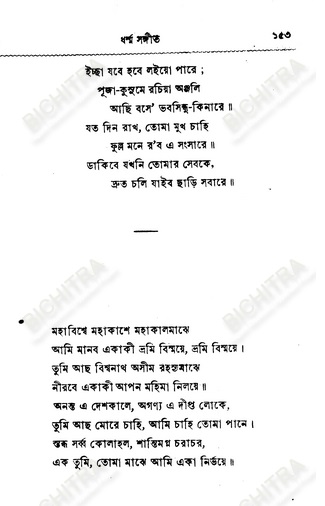 ধর্ম্ম সঙ্গীত ১৫৩
ইচ্ছা যবে হবে লইয়ো পারে ;
পূজা-কুসুমে রচিয়া অঞ্জলি
আছি বসে' ভবসিন্ধু-কিনারে ॥
যত দিন রাখ, তোমা মুখ চাহি
ফুল্ল মনে র'ব এ সংসারে ॥
ডাকিবে যখনি তোমার সেবকে,
দ্রুত চলি যাইব ছাড়ি সবারে ॥
মহাবিশ্বে মহাকাশে মহাকালমাঝে
আমি মানব একাকী ভ্রমি বিস্ময়ে, ভ্রমি বিস্ময়ে ।
তুমি আছ বিশ্বনাথ অসীম রহস্যমাঝে
নীরবে একাকী আপন মহিমা নিলয়ে ॥
অনন্ত এ দেশকালে, অগণ্য এ দীপ্ত লোকে,
তুমি আছ মোরে চাহি, আমি চাহি তোমা পানে ।
স্তব্ধ সর্ব্ব কোলাহল, শান্তিমগ্ন চরাচর,
এক তুমি, তোমা মাঝে আমি একা নির্ভয়ে ॥
BICHITRA
BICHITRA
BICHITRA
BICHITRA